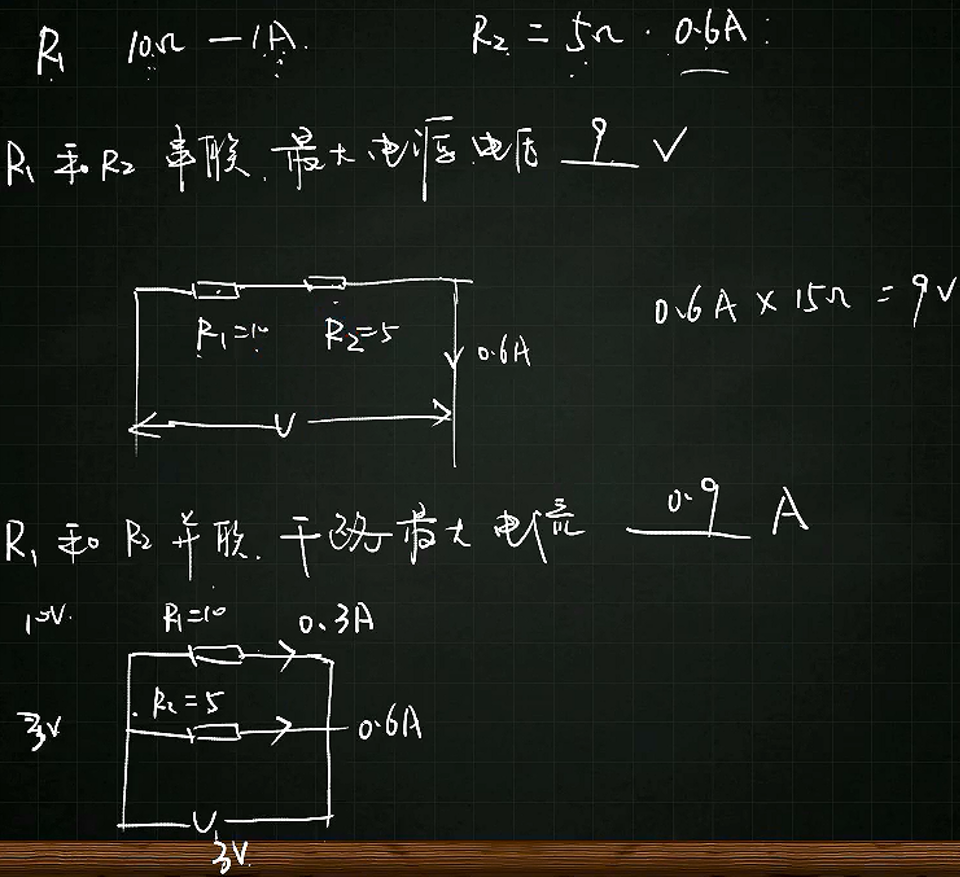 R₁ 10Ω — 1A. R₂ = 5Ω · 0.6A
R₁ 和 R₂ 串联. 最大电源电压 9 V
R₁=10 R₂=5
0.6A × 15Ω = 9V
0.6A
U
R₁ 和 R₂ 并联. 干路最大电流 0.9 A
10V. R₁=10 0.3A
R₂=5
3V 0.6A
U
3V